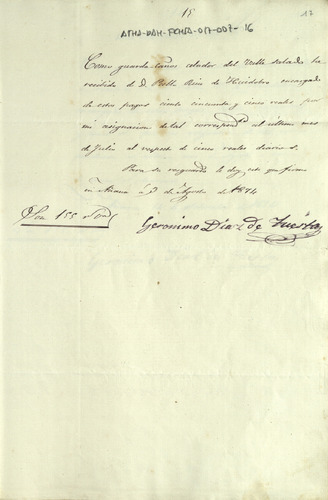 15
17
ATHA-DAH-FCHSA-017-007-16
Como guarda-caños celador del Valle salado he
recibido de D. Pablo Ruiz de Huidobro encargado
de estos pagos ciento cincuenta y cinco reales por
mi asignacion dello correspond.te al último mes
de Julio al respecto de cinco reales diarios.
Para su resguardo le doy este que firmo
en Anana á de Agosto de 1874
Son 155 r.s
Geronimo Diaz de Tuesta